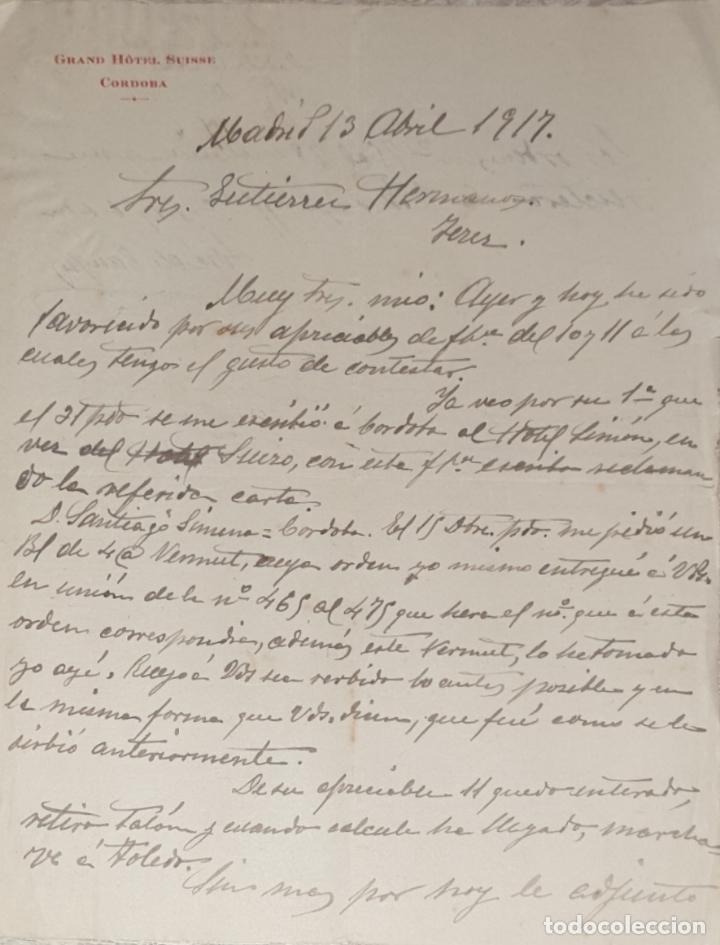 GRAND HÔTEL SUISSE
CORDOBA
Madrid 13 Abril 1917.
Sres. Gutierrez Hermanos.
Jerez.
Muy Sres. mio: Ayer y hoy he sido
favorecido por sus apreciables de fha. del 10 y 11 á las
cuales tengo el gusto de contestar.
Ya veo por su 1ª que
el 31 pdo se me escribió á Cordoba al Hotel Simón, en
vez del Hotel Suizo, con esta fha. escribo reclaman-
do la referida carta.
D. Santiago Simena = Cordoba. El 15 Dbre. pdo. me pidió un
Bl de 4@ Vermut, cuya orden yo mismo entregué á Vds.
en unión de la nº 465 al 475 que hera el nº. que á esta
orden correspondia, además este Vermut, lo he tomado
yo ayé. Ruego á Vds sea serbido lo antes posible y en
la misma forma que Vds. dicen, que fué como se le
sirbió anteriormente.
De su apreciable 11 quedo enterado,
retiro talón y cuando calcule ha llegado, marcha-
ré á Toledo.
Sin mas por hoy le adjunto
todocoleccion.net